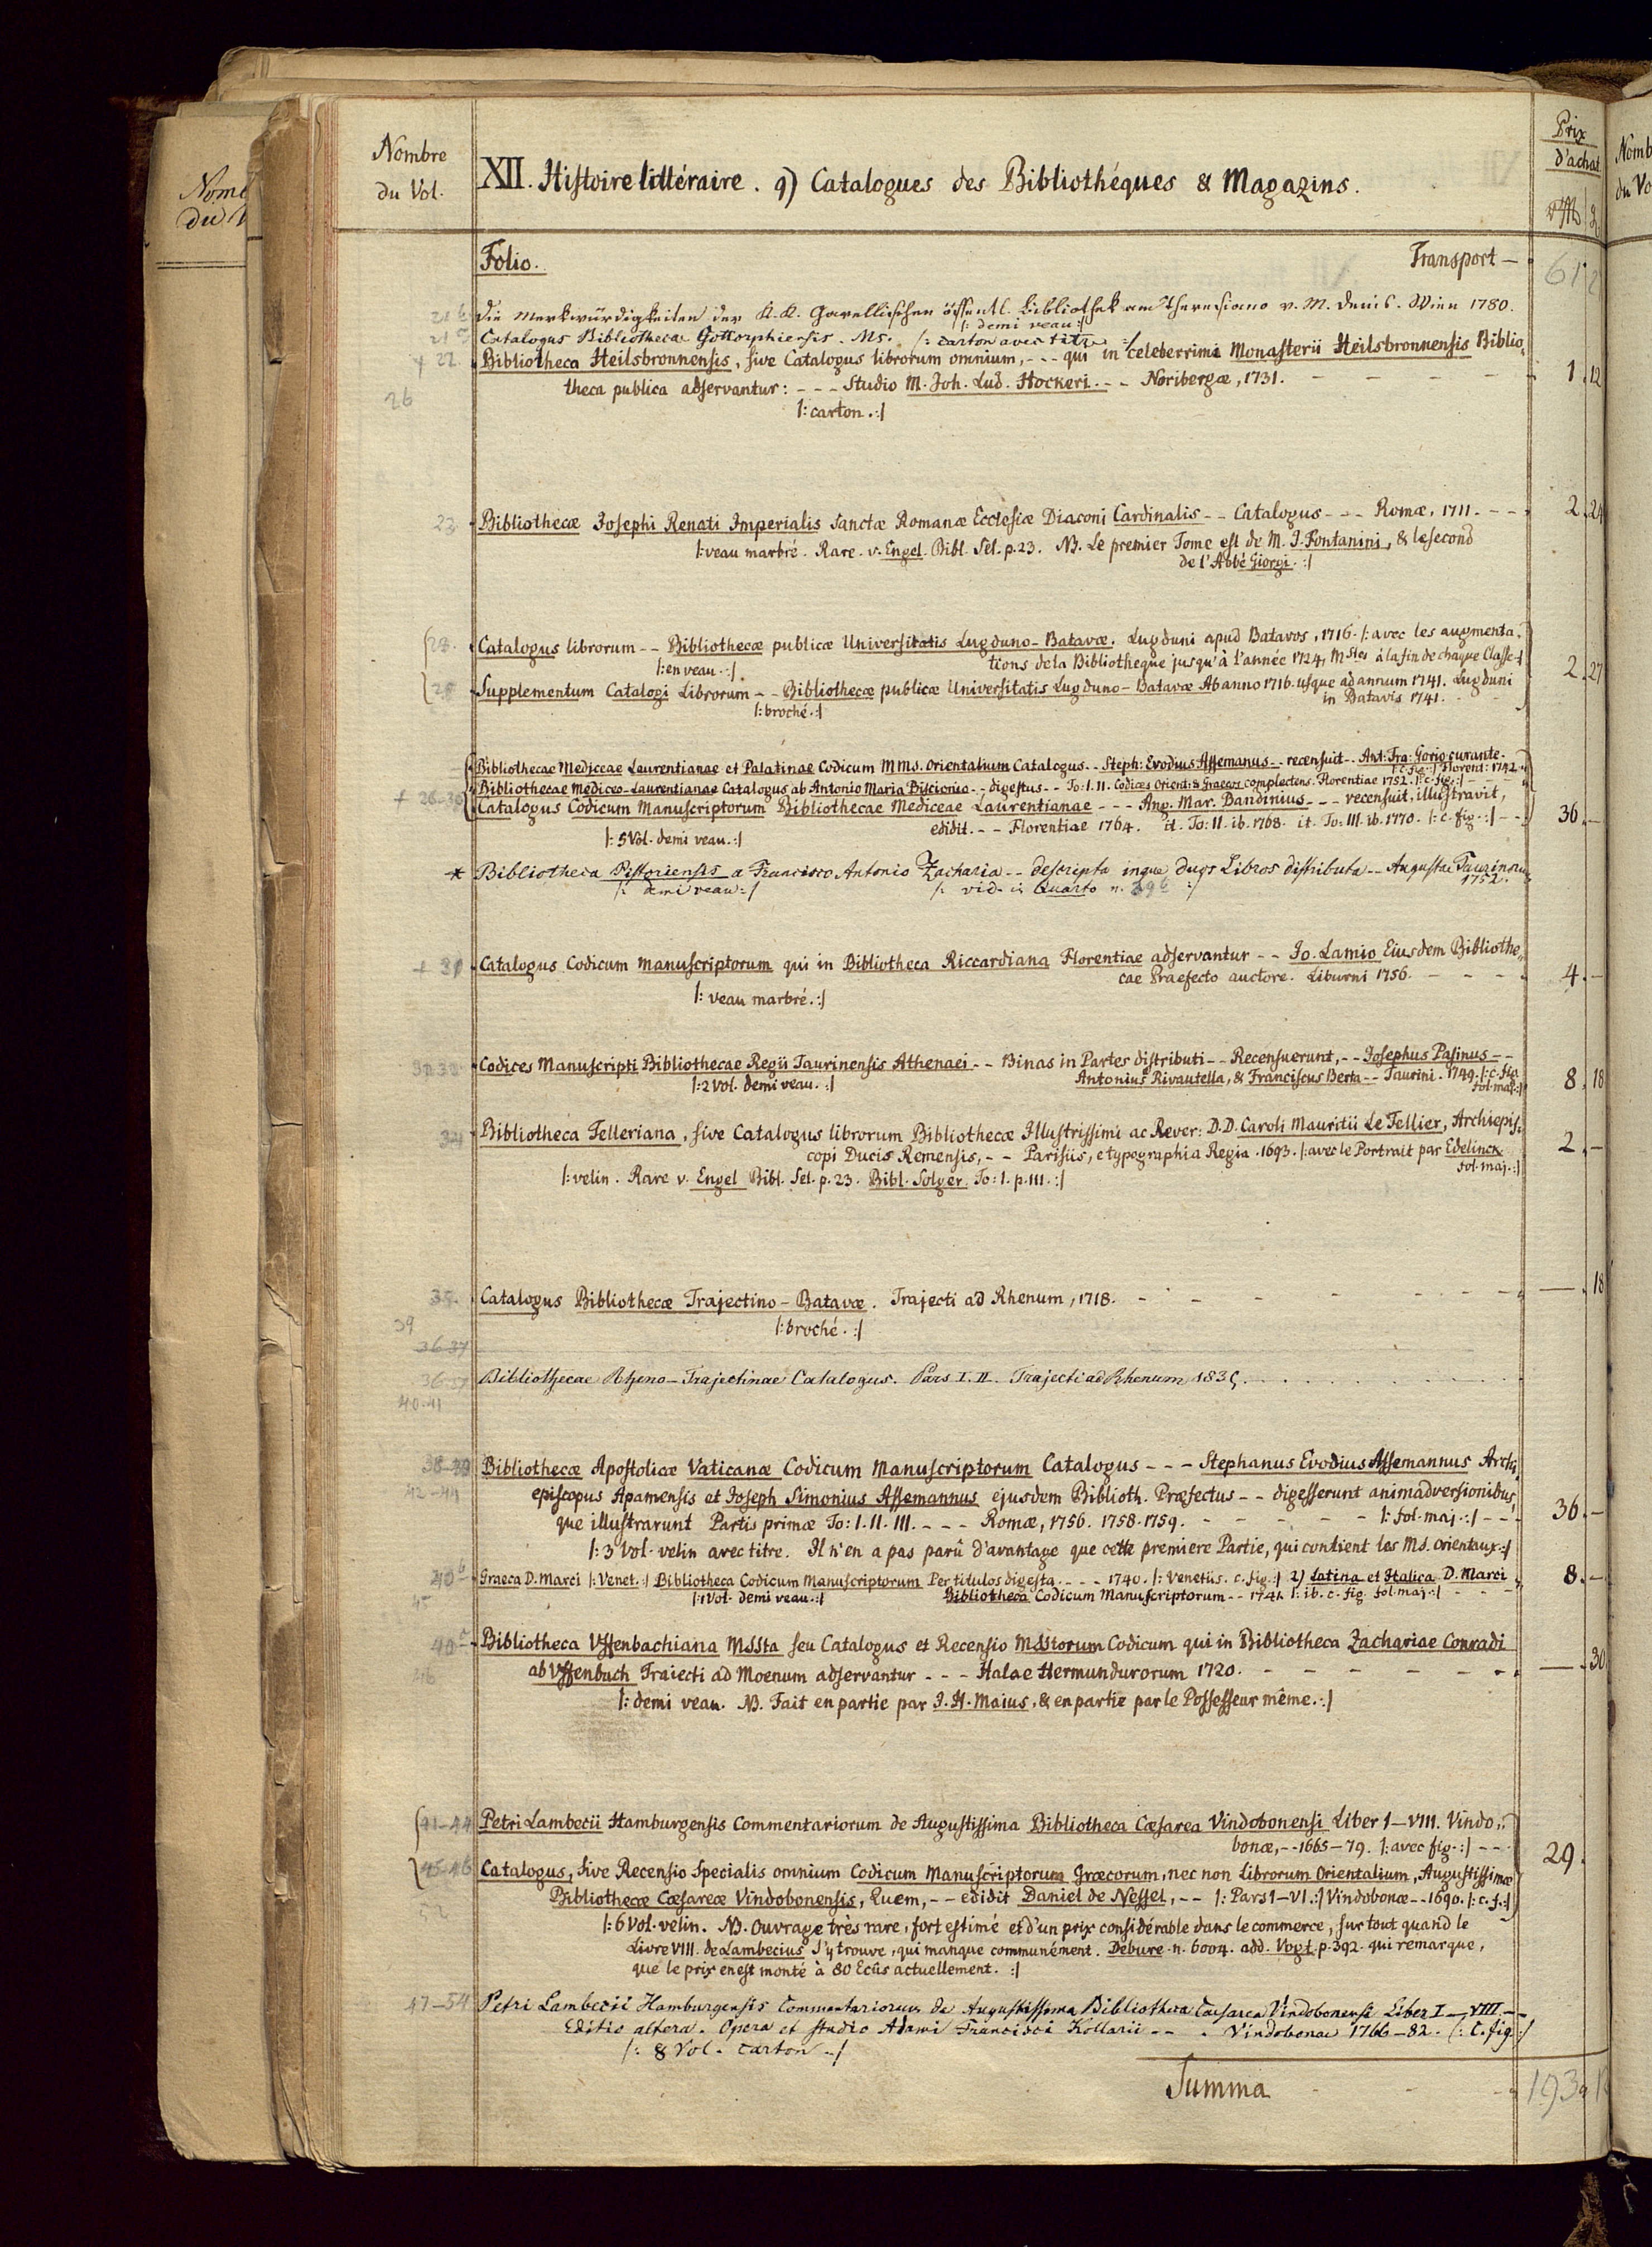 Nombre
du Vol.
XII. Histoire littéraire. q) Catalogues des Bibliothéques & Magazins.
Prix
d'achat.
Folio.
Transport —
61.
Die Merkwürdigkeiten der K.K. Garellischen öffentl. Bibliothek am Theresiano v. M. Denis. Wien 1780.
/: demi veau :/
Catalogus Bibliothecae Gottorphiensis. Ms. /: carton avec titre :/
+ 22. Bibliotheca Heilsbronnensis, sive Catalogus librorum omnium, - - - qui in celeberrimi Monasterii Heilsbronnensis Biblio,,
theca publica adservantur: - - - Studio M. Joh. Lud. Hockeri. - - Noribergæ, 1731. 1. 12
26
/: carton. :/
23. Bibliothecæ Josephi Renati Imperialis Sanctæ Romanæ Ecclesiæ Diaconi Cardinalis - - Catalogus - - - Romæ, 1711. - - - 2. 24
/: veau marbré. Rare. v. Engel. Bibl. Sel. p. 23. NB. Le premier Tome est de M. J. Fontanini, & le second
de l'Abbé Giorgi. :/
Catalogus librorum - - Bibliothecæ publicæ Universitatis Lugduno-Batavæ. Lugduni apud Batavos, 1716. /: avec les augmenta,,
/: en veau. :/ tions de la Bibliotheque jusqu'à l'année 1724, Mstes à la fin de chaque Classe :/ 2. 27
25. Supplementum Catalogi Librorum - - Bibliothecæ publicæ Universitatis Lugduno-Batavæ Ab anno 1716. usque ad annum 1741. Lugduni
/: broché. :/ in Batavis 1741.
Bibliothecae Mediceae Laurentianae et Palatinae Codicum MMs. Orientalium Catalogus. - - Steph: Evodius Assemanus - - recensuit - - Ant: Fra: Gorio curante -
/: c. fig. :/ Florent: 1742.
Bibliothecae Mediceo-Laurentianae Catalogus ab Antonio Maria Biscionio - - digestus - - To: I. II. Codices Orient: & Graecos complectens. Florentiae 1752. /: c. fig. :/
+ 26-30 Catalogus Codicum Manuscriptorum Bibliothecae Mediceae Laurentianae - - - Ang. Mar. Bandinius - - - recensuit, illustravit,
edidit. - - Florentiae 1764. it. To: II. ib. 1768. it. To: III. ib. 1770. /: c. fig. :/ - - 36. —
/: 5 Vol. demi veau. :/
* Bibliotheca Pistoriensis a Francisco Antonio Zacharia - - descripta inque duos Libros distributa - - Augustae Taurinorum
1752.
/: demi veau :/ /: vid. in Quarto n. :/
+ 31 Catalogus Codicum Manuscriptorum qui in Bibliotheca Riccardiana Florentiae adservantur - - Jo. Lamio Eiusdem Bibliothe,,
cae Praefecto auctore. Liburni 1756. - - - - 4. —
/: veau marbré. :/
32.33 Codices Manuscripti Bibliothecae Regii Taurinensis Athenaei - - Binas in Partes distributi - - Recensuerunt, - - Josephus Pasinus - -
/: 2 Vol. demi veau. :/ Antonius Rivautella, & Franciscus Berta - - Taurini. 1749. /: c. fig.
fol. maj. :/ 8. 18
34 Bibliotheca Telleriana, sive Catalogus librorum Bibliothecæ Illustrissimi ac Rever: D.D. Caroli Mauritii Le Tellier, Archiepis,,
copi Ducis Remensis, - - Parisiis, e typographia Regia. 1693. /: avec le Portrait par Edelinck
fol. maj. :/ 2. —
/: velin. Rare v. Engel Bibl. Sel. p. 23. Bibl. Solger. To: 1. p. 111. :/
35. Catalogus Bibliothecæ Trajectino-Batavæ. Trajecti ad Rhenum, 1718. - - - - - - — 18
/: broché. :/
39
36-37
36-37 Bibliothecae Rheno-Trajectinae Catalogus. Pars I. II. Trajecti ad Rhenum 1835.
40-41
38-39 Bibliothecæ Apostolicæ Vaticanæ Codicum Manuscriptorum Catalogus - - - Stephanus Evodius Assemannus Archi,,
42-44 episcopus Apamensis et Joseph Simonius Assemannus ejusdem Biblioth. Præfectus - - digesserunt animadversionibus,,
que illustrarunt Partis primæ To: I. II. III. - - - Romæ, 1756. 1758. 1759. - - - - /: fol. maj. :/ - - - 36. —
/: 3 Vol. velin avec titre. Il n'en a pas parû d'avantage que cette premiere Partie, qui contient les Ms. orientaux. :/
40b Graeca D. Marci /: Venet. :/ Bibliotheca Codicum Manuscriptorum Per titulos digesta. - - - 1740. /: Venetiis. c. fig. :/ 2) Latina et Italica D. Marci 8. —
/: 1 Vol. demi veau. :/ Bibliotheca Codicum Manuscriptorum - - 1741. /: ib. c. fig. fol. maj. :/
40c Bibliotheca Uffenbachiana MSSta seu Catalogus et Recensio MSStorum Codicum qui in Bibliotheca Zachariae Conradi
46 ab Uffenbach Traiecti ad Moenum adservantur - - - Halae Hermundurorum 1720. - - - - - — 30
/: demi veau. NB. Fait en partie par J. H. Maius, & en partie par le Possesseur même. :/
41-44 Petri Lambecii Hamburgensis Commentariorum de Augustissima Bibliotheca Cæsarea Vindobonensi Liber I-VIII. Vindo,,
bonæ, - - 1665-79. /: avec fig. :/ - - - 29.
45-46 Catalogus, sive Recensio Specialis omnium Codicum Manuscriptorum Græcorum, nec non Librorum Orientalium, Augustissimæ
Bibliothecæ Cæsareæ Vindobonensis, Quem, - - edidit Daniel de Nessel, - - /: Pars I-VI. :/ Vindobonæ - - 1690. /: c. f. :/
52
/: 6 Vol. velin. NB. Ouvrage très rare, fort estimé et d'un prix considérable dans le commerce, sur tout quand le
Livre VIII. de Lambecius s'y trouve, qui manque communément. Debure. n. 6004. add. Vogt. p. 392. qui remarque,
que le prix en est monté à 80 Ecûs actuellement. :/
47-54 Petri Lambecii Hamburgensis Commentariorum de Augustissima Bibliotheca Caesarea Vindobonensi Liber I-VIII - -
Editio altera. Opera et studio Adami Francisci Kollarii - - . Vindobonae 1766-82. /: C. fig :/
/: 8 Vol. carton. :/
Summa - - - 193